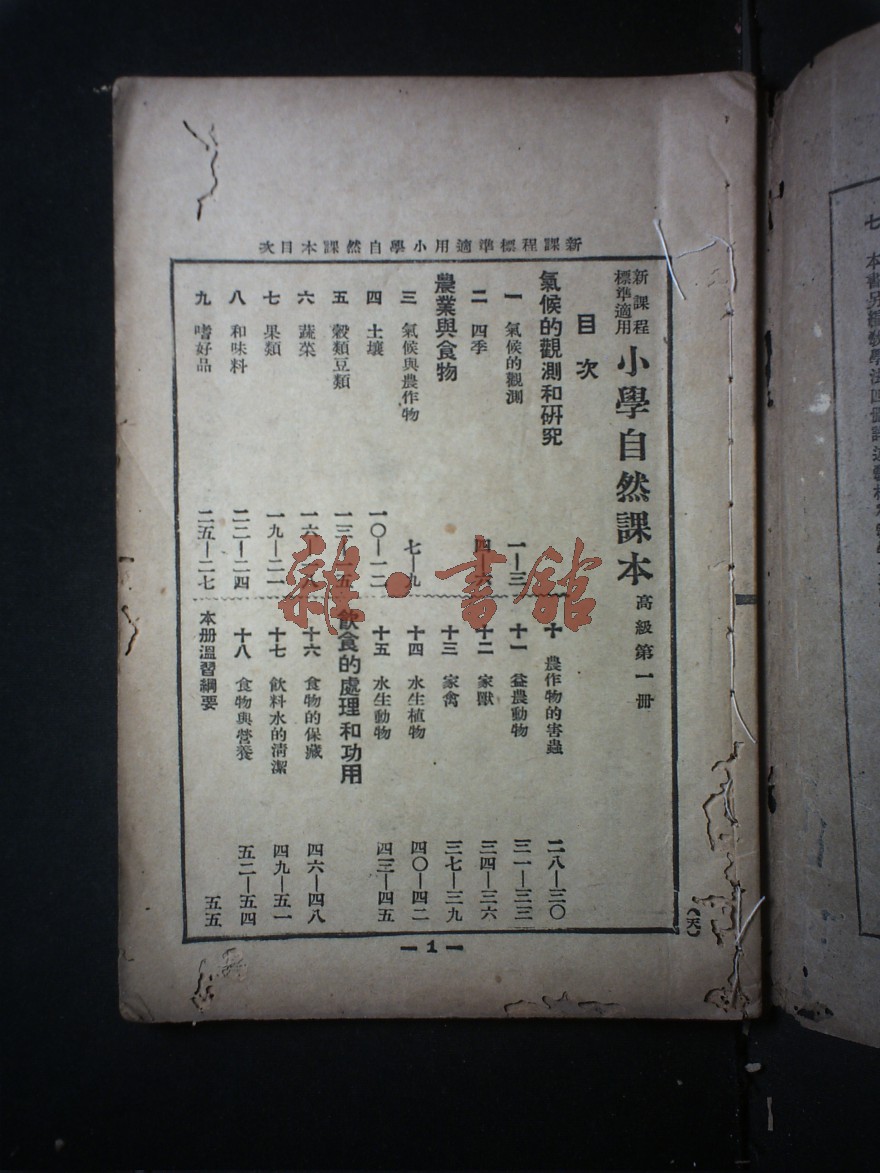 新課程標準適用小學自然課本目次
新課程標準適用
小學自然課本
高級第一冊
目次
氣候的觀測和研究
一 氣候的觀測 一—三
二 四季 四—六
農業與食物
三 氣候與農作物 七—九
四 土壤 一〇—一二
五 穀類豆類 一三—一五
六 蔬菜 一六—一八
七 果類 一九—二一
八 和味料 二二—二四
九 嗜好品 二五—二七
十 農作物的害蟲 二八—三〇
十一 益農動物 三一—三三
十二 家獸 三四—三六
十三 家禽 三七—三九
十四 水生植物 四〇—四二
十五 水生動物 四三—四五
飲食的處理和功用
十六 食物的保藏 四六—四八
十七 飲料水的清潔 四九—五一
十八 食物與營養 五二—五四
本册溫習綱要 五五
(天)
— 1 —
雜·書館
七